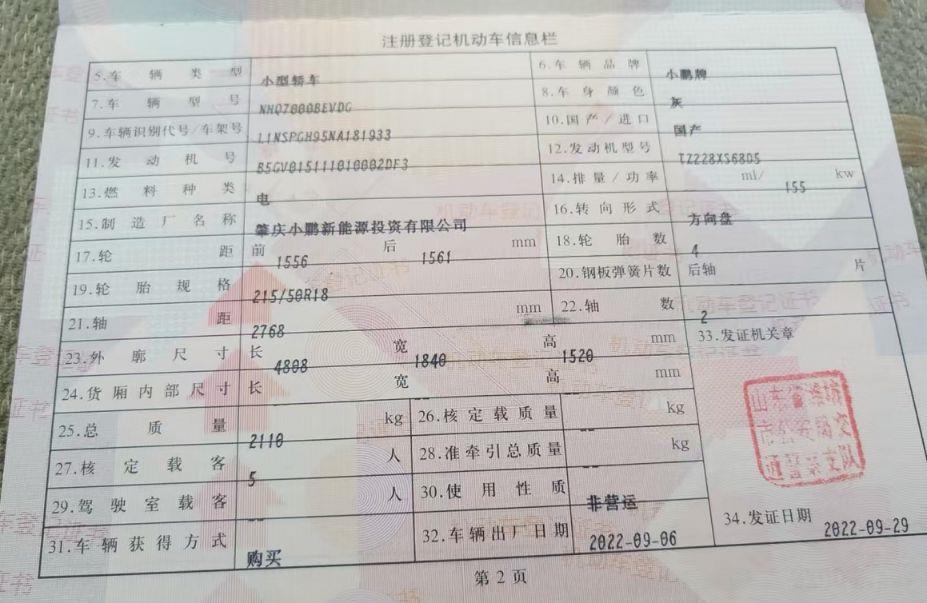 注册登记机动车信息栏
5.车辆类型 小型轿车 6.车辆品牌 小鹏牌
7.车辆型号 NHQ7000BEVDG 8.车身颜色 灰
9.车辆识别代号/车架号 L1NSPGH95NA181933 10.国产/进口 国产
11.发动机号 B5GV015111010002DF3 12.发动机型号 TZ228XS68D5
13.燃料种类 电 14.排量/功率 ml/ 155 kw
15.制造厂名称 肇庆小鹏新能源投资有限公司 16.转向形式 方向盘
17.轮距 前 1556 后 1561 mm 18.轮胎数 4
19.轮胎规格 215/50R18 20.钢板弹簧片数 后轴 片
21.轴距 2768 mm 22.轴数 2
23.外廓尺寸 长 4808 宽 1840 高 1520 mm 33.发证机关章
24.货厢内部尺寸 长 宽 高 mm
25.总质量 2110 kg 26.核定载质量 -- kg
27.核定载客 5 人 28.准牵引总质量 -- kg
29.驾驶室载客 -- 人 30.使用性质 非营运
31.车辆获得方式 购买 32.车辆出厂日期 2022-09-06 34.发证日期 2022-09-29
山东省潍坊
市公安局交
通警察支队
第2页